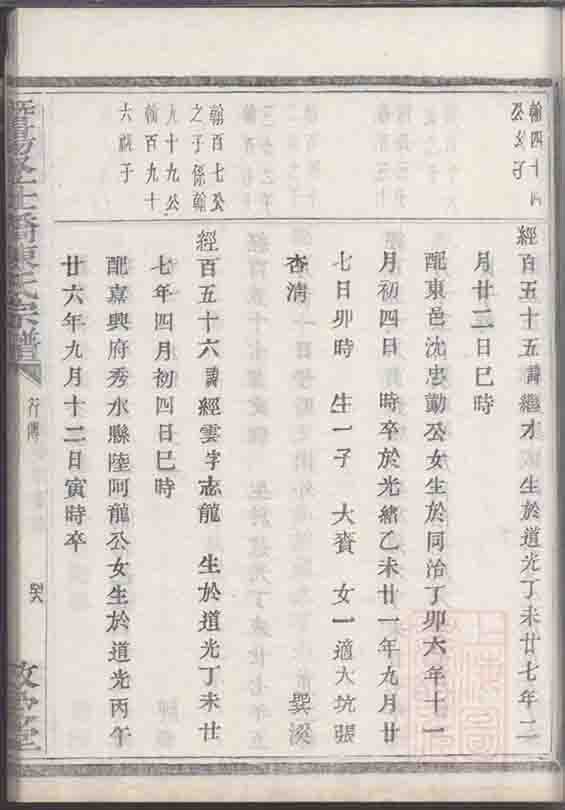 經百五十五諱繼才 生於道光丁未廿七年二
月廿二日巳時
配東邑沈忠勤公女生於同治丁卯六年十一
月初四日 時卒於光緒乙未廿一年九月廿
七日卯時 生一子 大賚 女一適大坑張
杏清
翰百七癸
之子係翰
九十九公
翰百九十
六祧子
經百五十六諱經雲字志龍 生於道光丁未廿
七年四月初四日巳時
配嘉興府秀水縣陸阿龍公女生於道光丙午
廿六年九月十二日寅時卒
宗譜
行傳